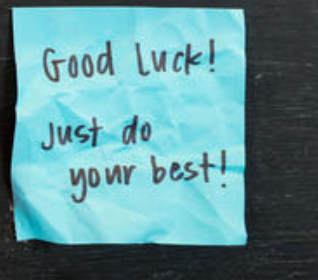 Good luck!
Just do
your best!